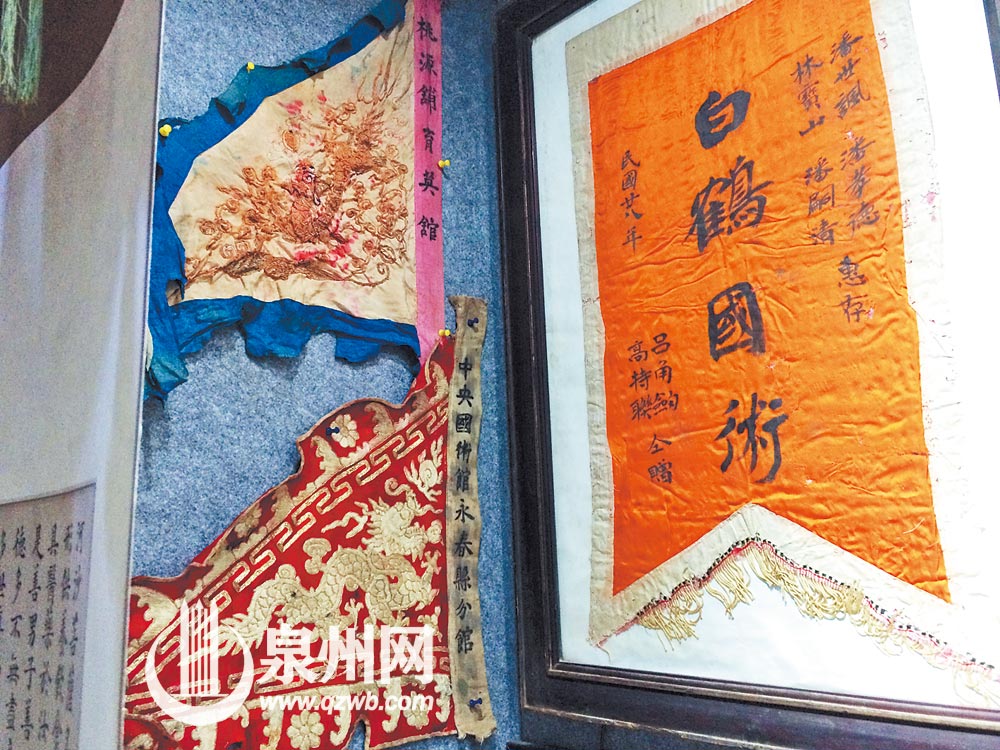 桃源鋪育英館
中央國術館永春縣分館
潘世諷 潘孝德 惠存
林寶山 潘嗣清
白鶴國術
民國廿八年
呂甬鈎
高持聯 仝贈
泉州网
www.qzwb.com